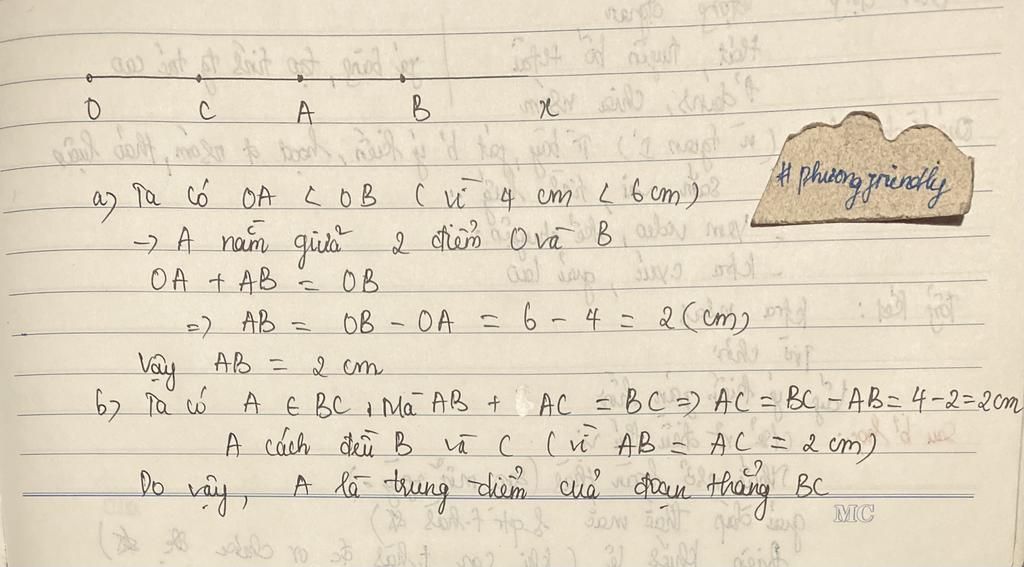 O C A B x
#phuongfriendly
a) Ta có OA < OB ( vì 4 cm < 6cm)
→ A nằm giữa 2 điểm O và B
OA + AB = OB
=> AB = OB - OA = 6 - 4 = 2 (cm)
Vậy AB = 2 cm
b) Ta có A ∈ BC, Mà AB + AC = BC => AC = BC - AB = 4 - 2 = 2cm
A cách đều B và C ( vì AB = AC = 2 cm)
Do vậy, A là trung điểm của đoạn thẳng BC
MC